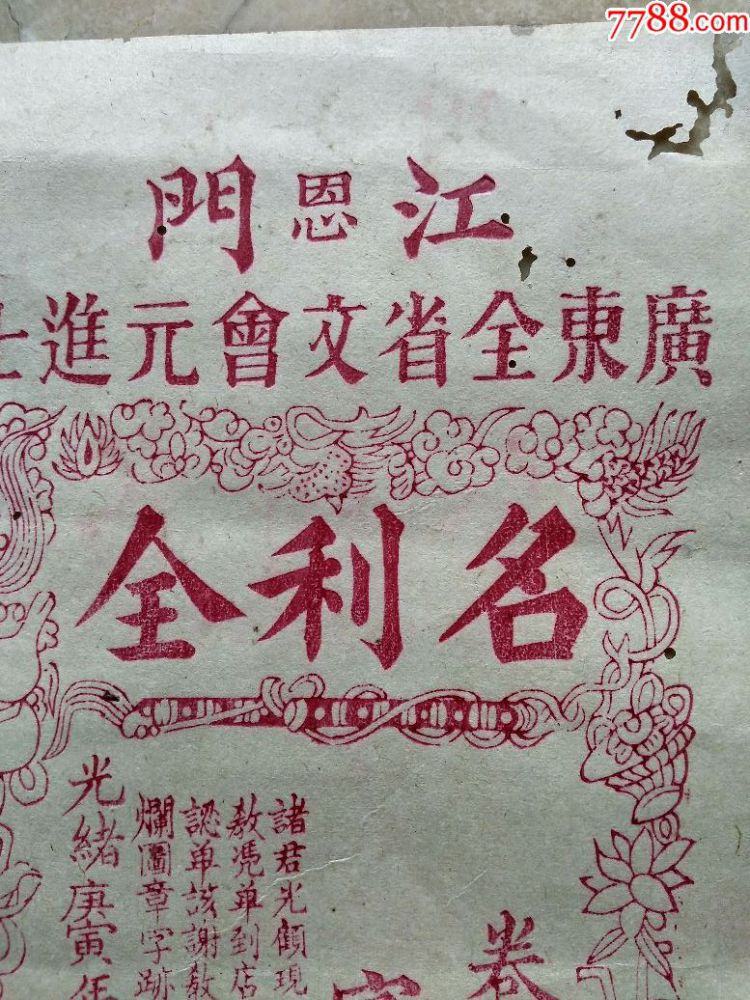 7788.com
江恩門
廣東全省文會元進士
名利全
卷
諸君光顧現
教凴单到店
認单該謝教
爛圖章字跡
光緒庚寅年